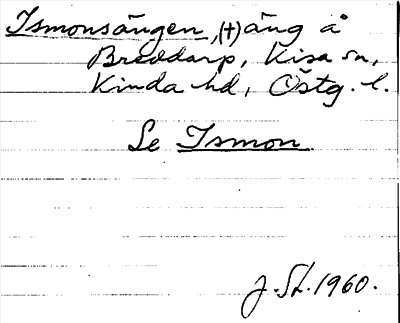 Ismonsängen, (†) äng å
Breddarp, Kisa sn,
Kinda hd, Östg. l.
Se Ismon.
J. St. 1960.